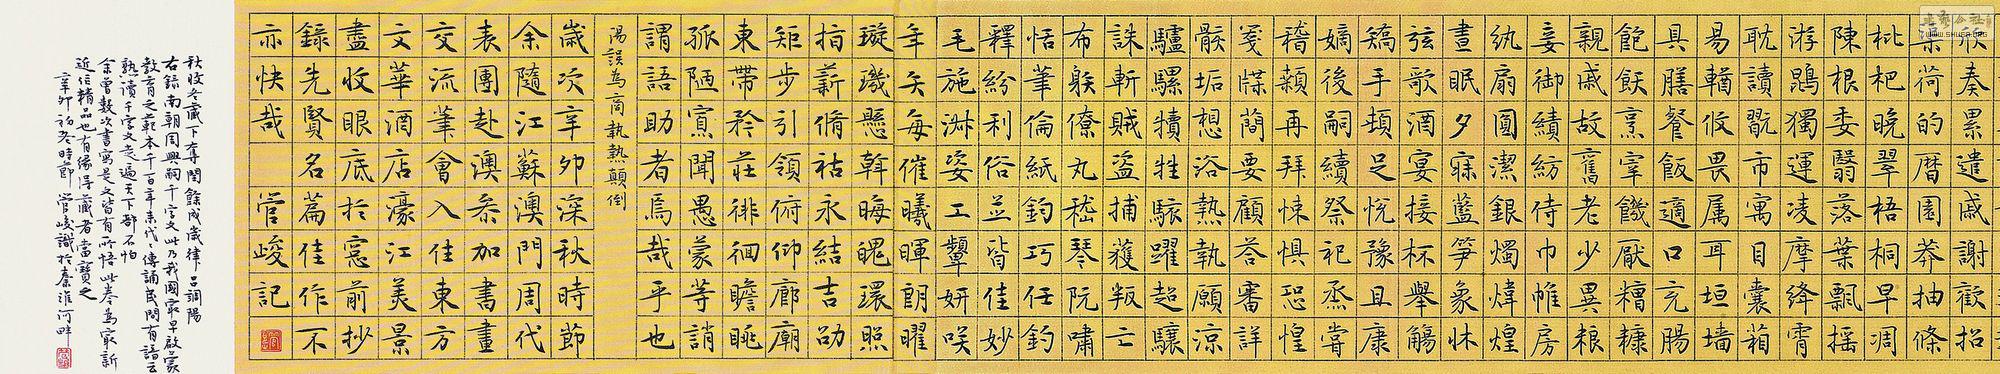 欣奏累遣戚謝歡招
渠荷的曆園莽抽條
枇杷晚翠梧桐早凋
陳根委翳落葉飄搖
游鵾獨運凌摩絳霄
耽讀翫市寓目囊箱
易輶攸畏属耳垣墙
具膳餐飯適口充腸
飽飫烹宰饑厭糟糠
親戚故舊老少異粮
妾御績紡侍巾帷房
紈扇圓潔銀燭煒煌
晝眠夕寐藍笋象床
弦歌酒宴接杯舉觴
矯手頓足悅豫且康
嫡後嗣續祭祀烝嘗
稽顙再拜悚懼恐惶
箋牒簡要顧答審詳
骸垢想浴熱執願涼
驢騾犢特駭躍超驤
誅斬賊盜捕獲叛亡
布射僚丸嵇琴阮嘯
恬筆倫紙鈞巧任釣
釋紛利俗並皆佳妙
毛施淑姿工顰妍笑
年矢每催曦暉朗曜
璇璣懸斡晦魄環照
指薪脩祜永結吉劭
矩步引領俯仰廊廟
束帶矜莊徘徊瞻眺
孤陋寡聞愚蒙等誚
謂語助者焉哉乎也
湯誤為商執熱顛倒
歲次辛卯深秋時節
余隨江蘇澳門周代
表團赴澳參加書畫
交流筆會入住東方
文華酒店濠江美景
盡收眼底於窗前抄
錄先賢名篇佳作不
亦快哉 管峻記
秋收冬藏下奪閏餘成歲律呂調陽
右錄南朝周興嗣千字文此乃我國最早啟蒙
教育之範本千百年來代代傳誦民間有語云
熟讀千字文走遍天下都不怕
余曾數次書寫是文皆有所悟此卷為最新
近信精品也有緣得藏者當寶之
辛卯初冬時節 管峻識於秦淮河畔
WWW.SHUSR.ORG